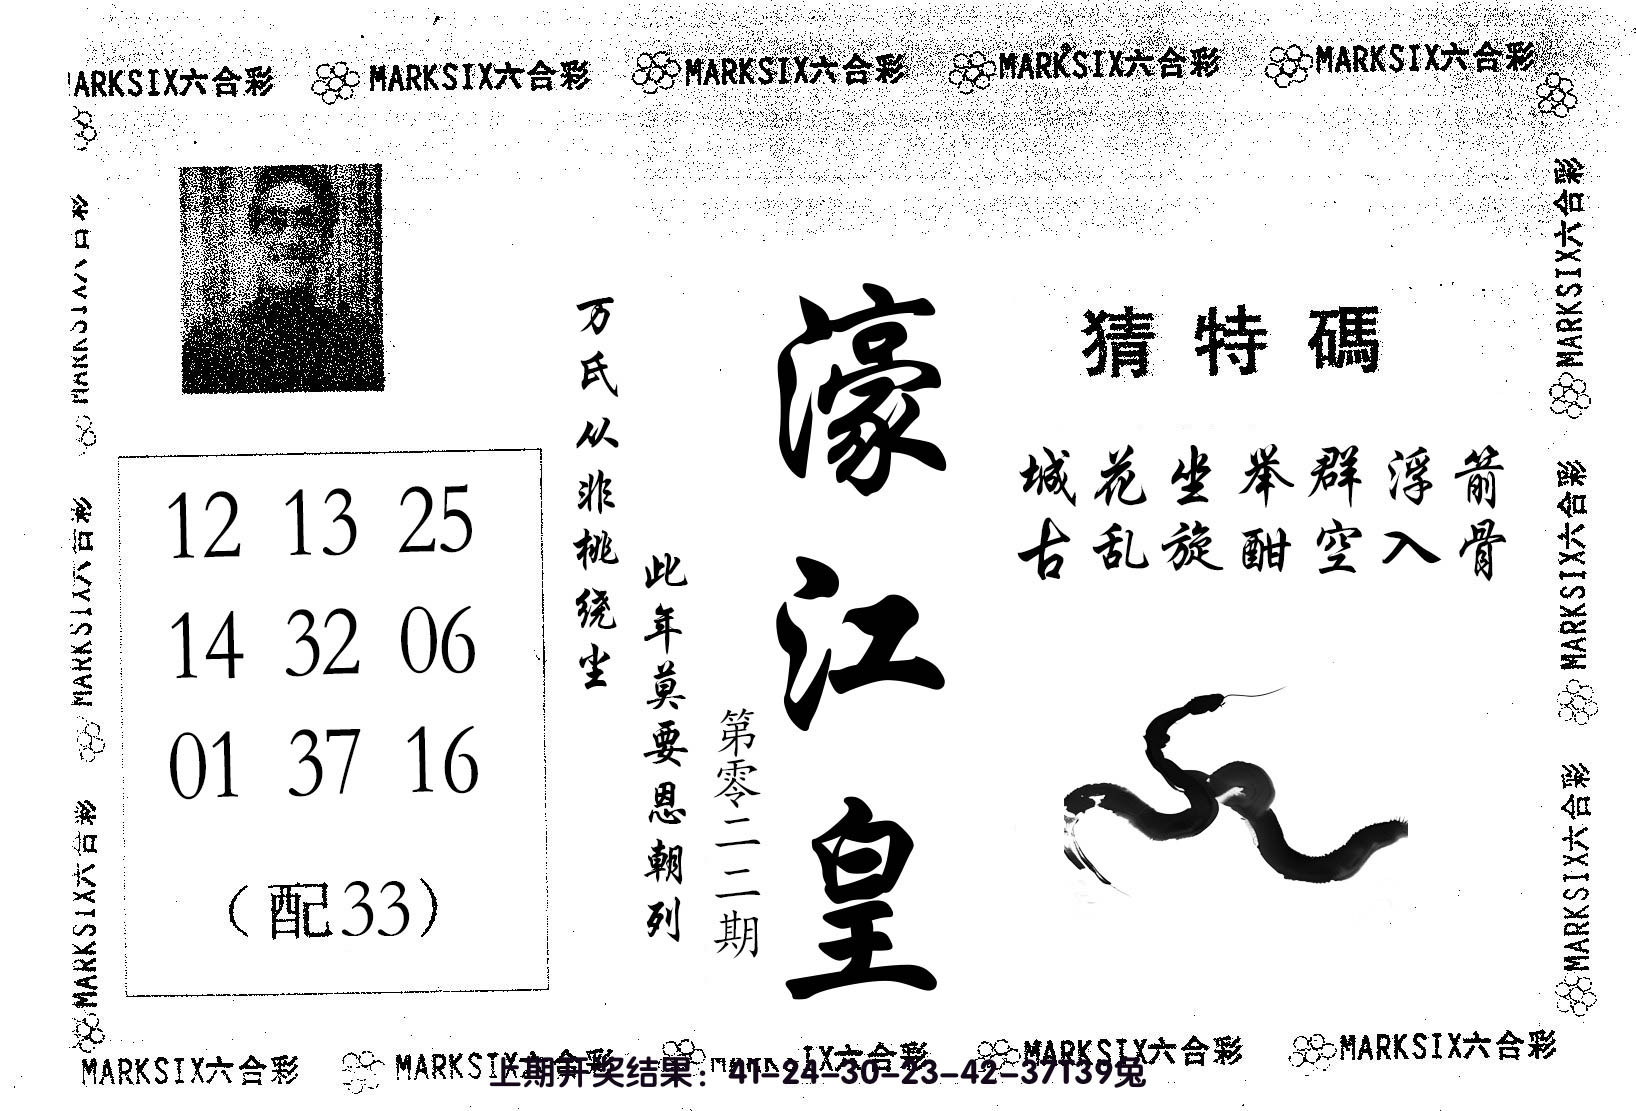 MARKSIX六合彩 MARKSIX六合彩 MARKSIX六合彩 MARKSIX六合彩
MARKSIX六合彩
MARKSIX六合彩
MARKSIX六合彩
MARKSIX六合彩
MARKSIX六合彩
猜特碼
城花坐举群浮箭
古乱旋酣空入骨
濠江皇
第零二二期
此年莫要恩朝列
万氏从非桃绕坐
12 13 25
14 32 06
01 37 16
（配33）
MARKSIX六合彩 MARKSIX六合彩 MARKSIX六合彩 MARKSIX六合彩
上期开奖结果：41-24-30-23-42-37T39兔